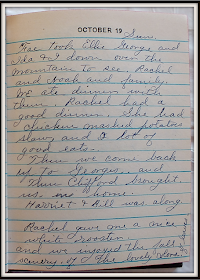 OCTOBER 19 Sun.
Mae Took Ellie George and
Ila & I down over the
mountain to see Rachel
and and family.
We ate dinner with
them. Rachel had a
good dinner. She had
chicken mashed potatoes
slaw and a lot of
good eats.
Then we come back
up to Georges and
then Clifford brought
us on home.
Harriet & Bill was along
Rachel gave me a nice
white rooster
and we enjoyed the fall
scenery of the lovely